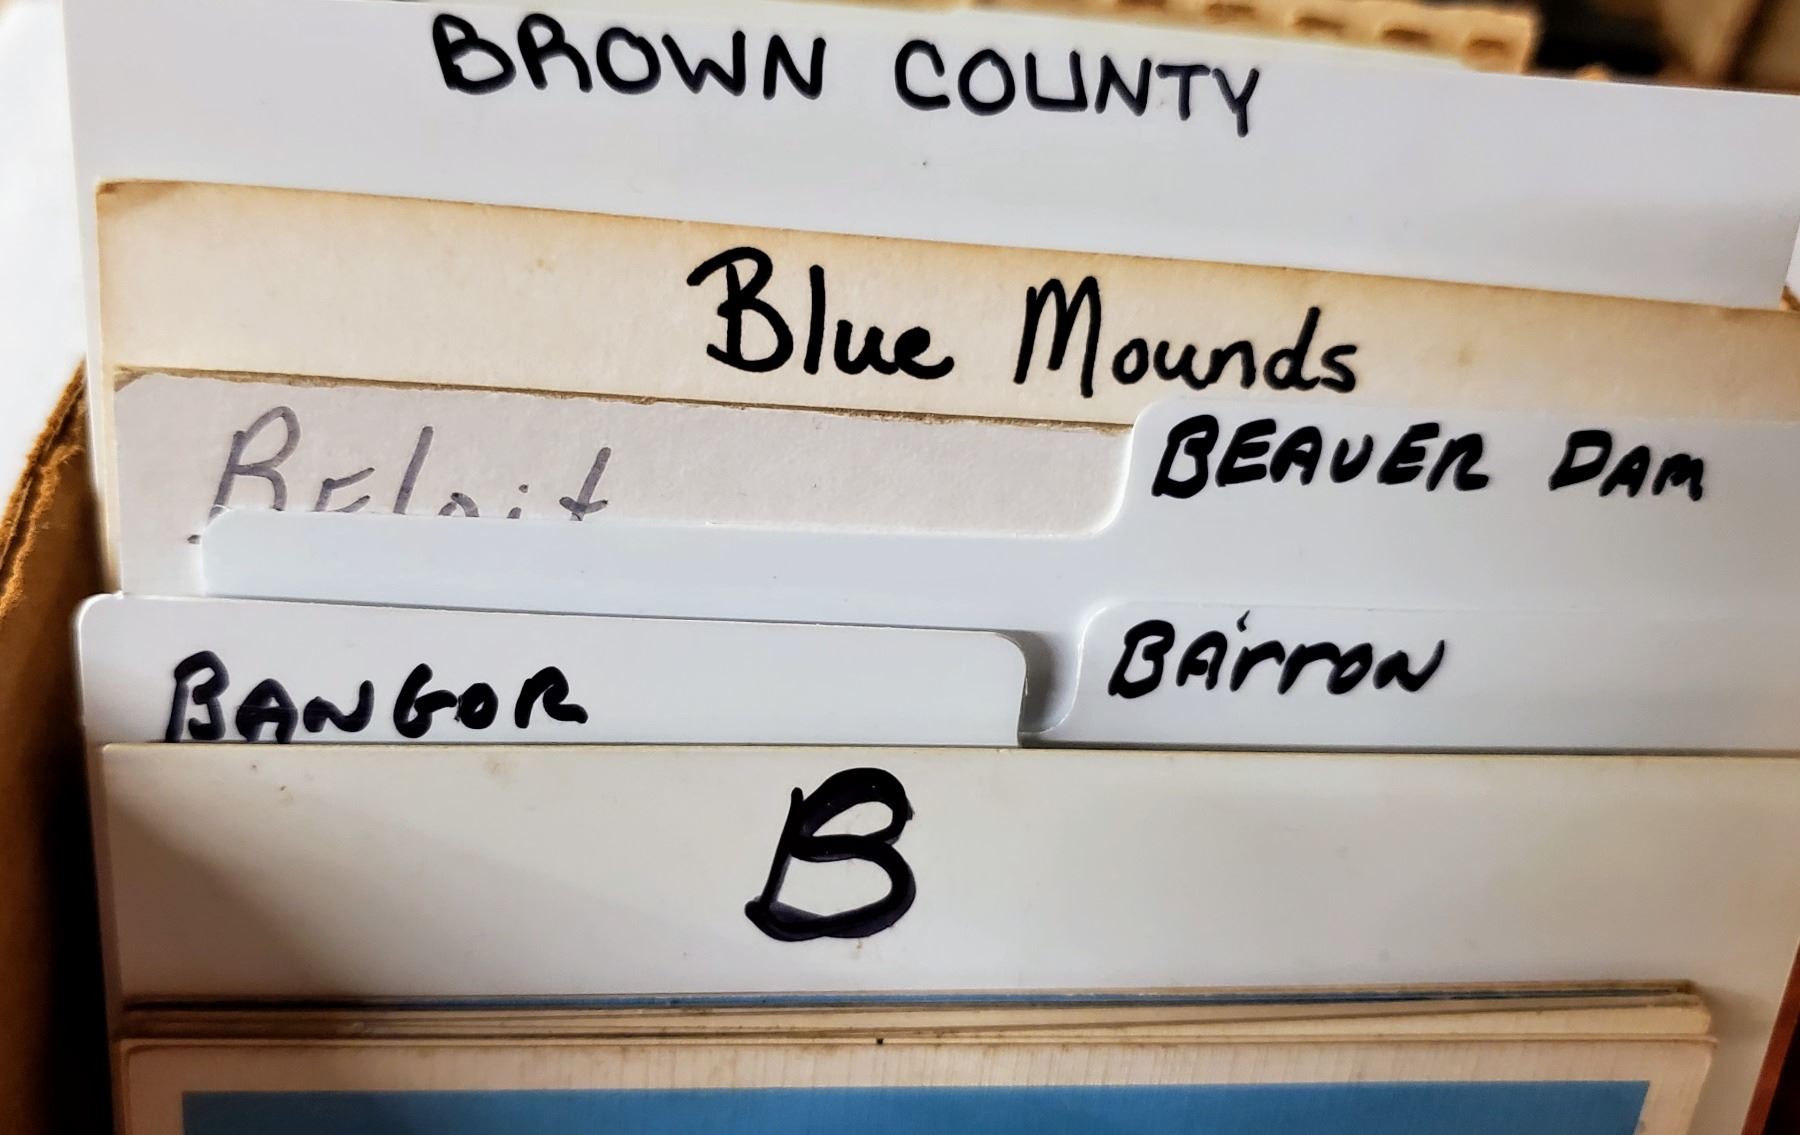 BROWN COUNTY
Blue Mounds
Beloit
BEAVER DAM
BANGOR
BArrON
B